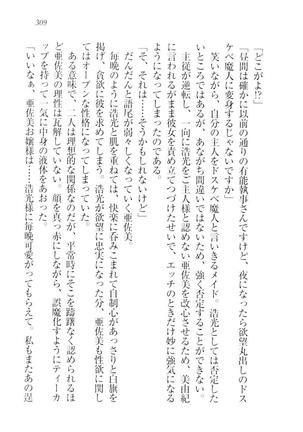 309
「どこがよ!?」
「昼間は確かに以前の通りの有能執事さんですけど、夜になったら欲望丸出しのドス
ケベ魔人に変身するじゃないですか」
笑いながら、自分の主人をドスケベ魔人と言いきるメイド。浩光としては否定した
いところではあるが、あながち間違いではないため、強く否定することができない。
主従が逆転し、一向に浩光をご主人様と認めない亜佐美を改心させるため、美由紀
に言われるがままに彼女を責め立てつづけたせいで、エッチのときだけ妙に強気にな
るようになってしまったのである。
「そ、それは……そうかもしれないけど」
だんだんと語尾が弱々しくなっていく亜佐美。
毎晩のように浩光と肌を重ねては、快楽に呑みこまれて自制心があっさりと白旗を
掲げ、貪欲に彼を求めてしまう。浩光が欲望に忠実になった分、亜佐美も性欲に関し
てはオープンな性格になってしまっていた。
ある意味で、二人は理想的な関係なのだが、平常時にそこを躊躇なく認められるほ
ど亜佐美の理性は瓦解していない。顔を真っ赤にしながら、誤魔化すようにティーカ
ップを持って一気に中身の液体をあおった。
「いいなぁ、亜佐美お嬢様は浩光様に毎晩可愛がってもらえて。私もまたあの逞